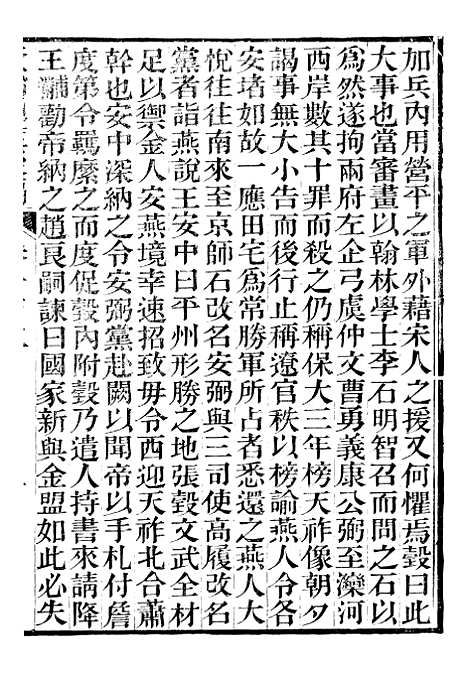 加兵內用營平之軍外藉宋人之援又何懼焉瑴曰此
大事也當審畫以翰林學士李石明智召而問之石以
爲然遂拘兩府左企弓虞仲文曹勇義康公弼至灤河
西岸數其十罪而殺之仍稱保大三年榜天祚像朝夕
謁事無大小告而後行止稱遼官秩以榜諭燕人令各
安堵如故一應田宅爲常勝軍所占者悉還之燕人大
悅往往南來至京師石改名安弼與三司使高履改名
黨者詣燕說王安中曰平州形勝之地張瑴文武全材
足以禦金人安燕境幸速招致毋令西迎天祚北合蕭
幹也安中深納之令安弼黨赴闕以聞帝以手札付詹
度第令羈縻之而度促瑴內附瑴乃遣人持書來請降
王黼勸帝納之趙良嗣諫曰國家新與金盟如此必失